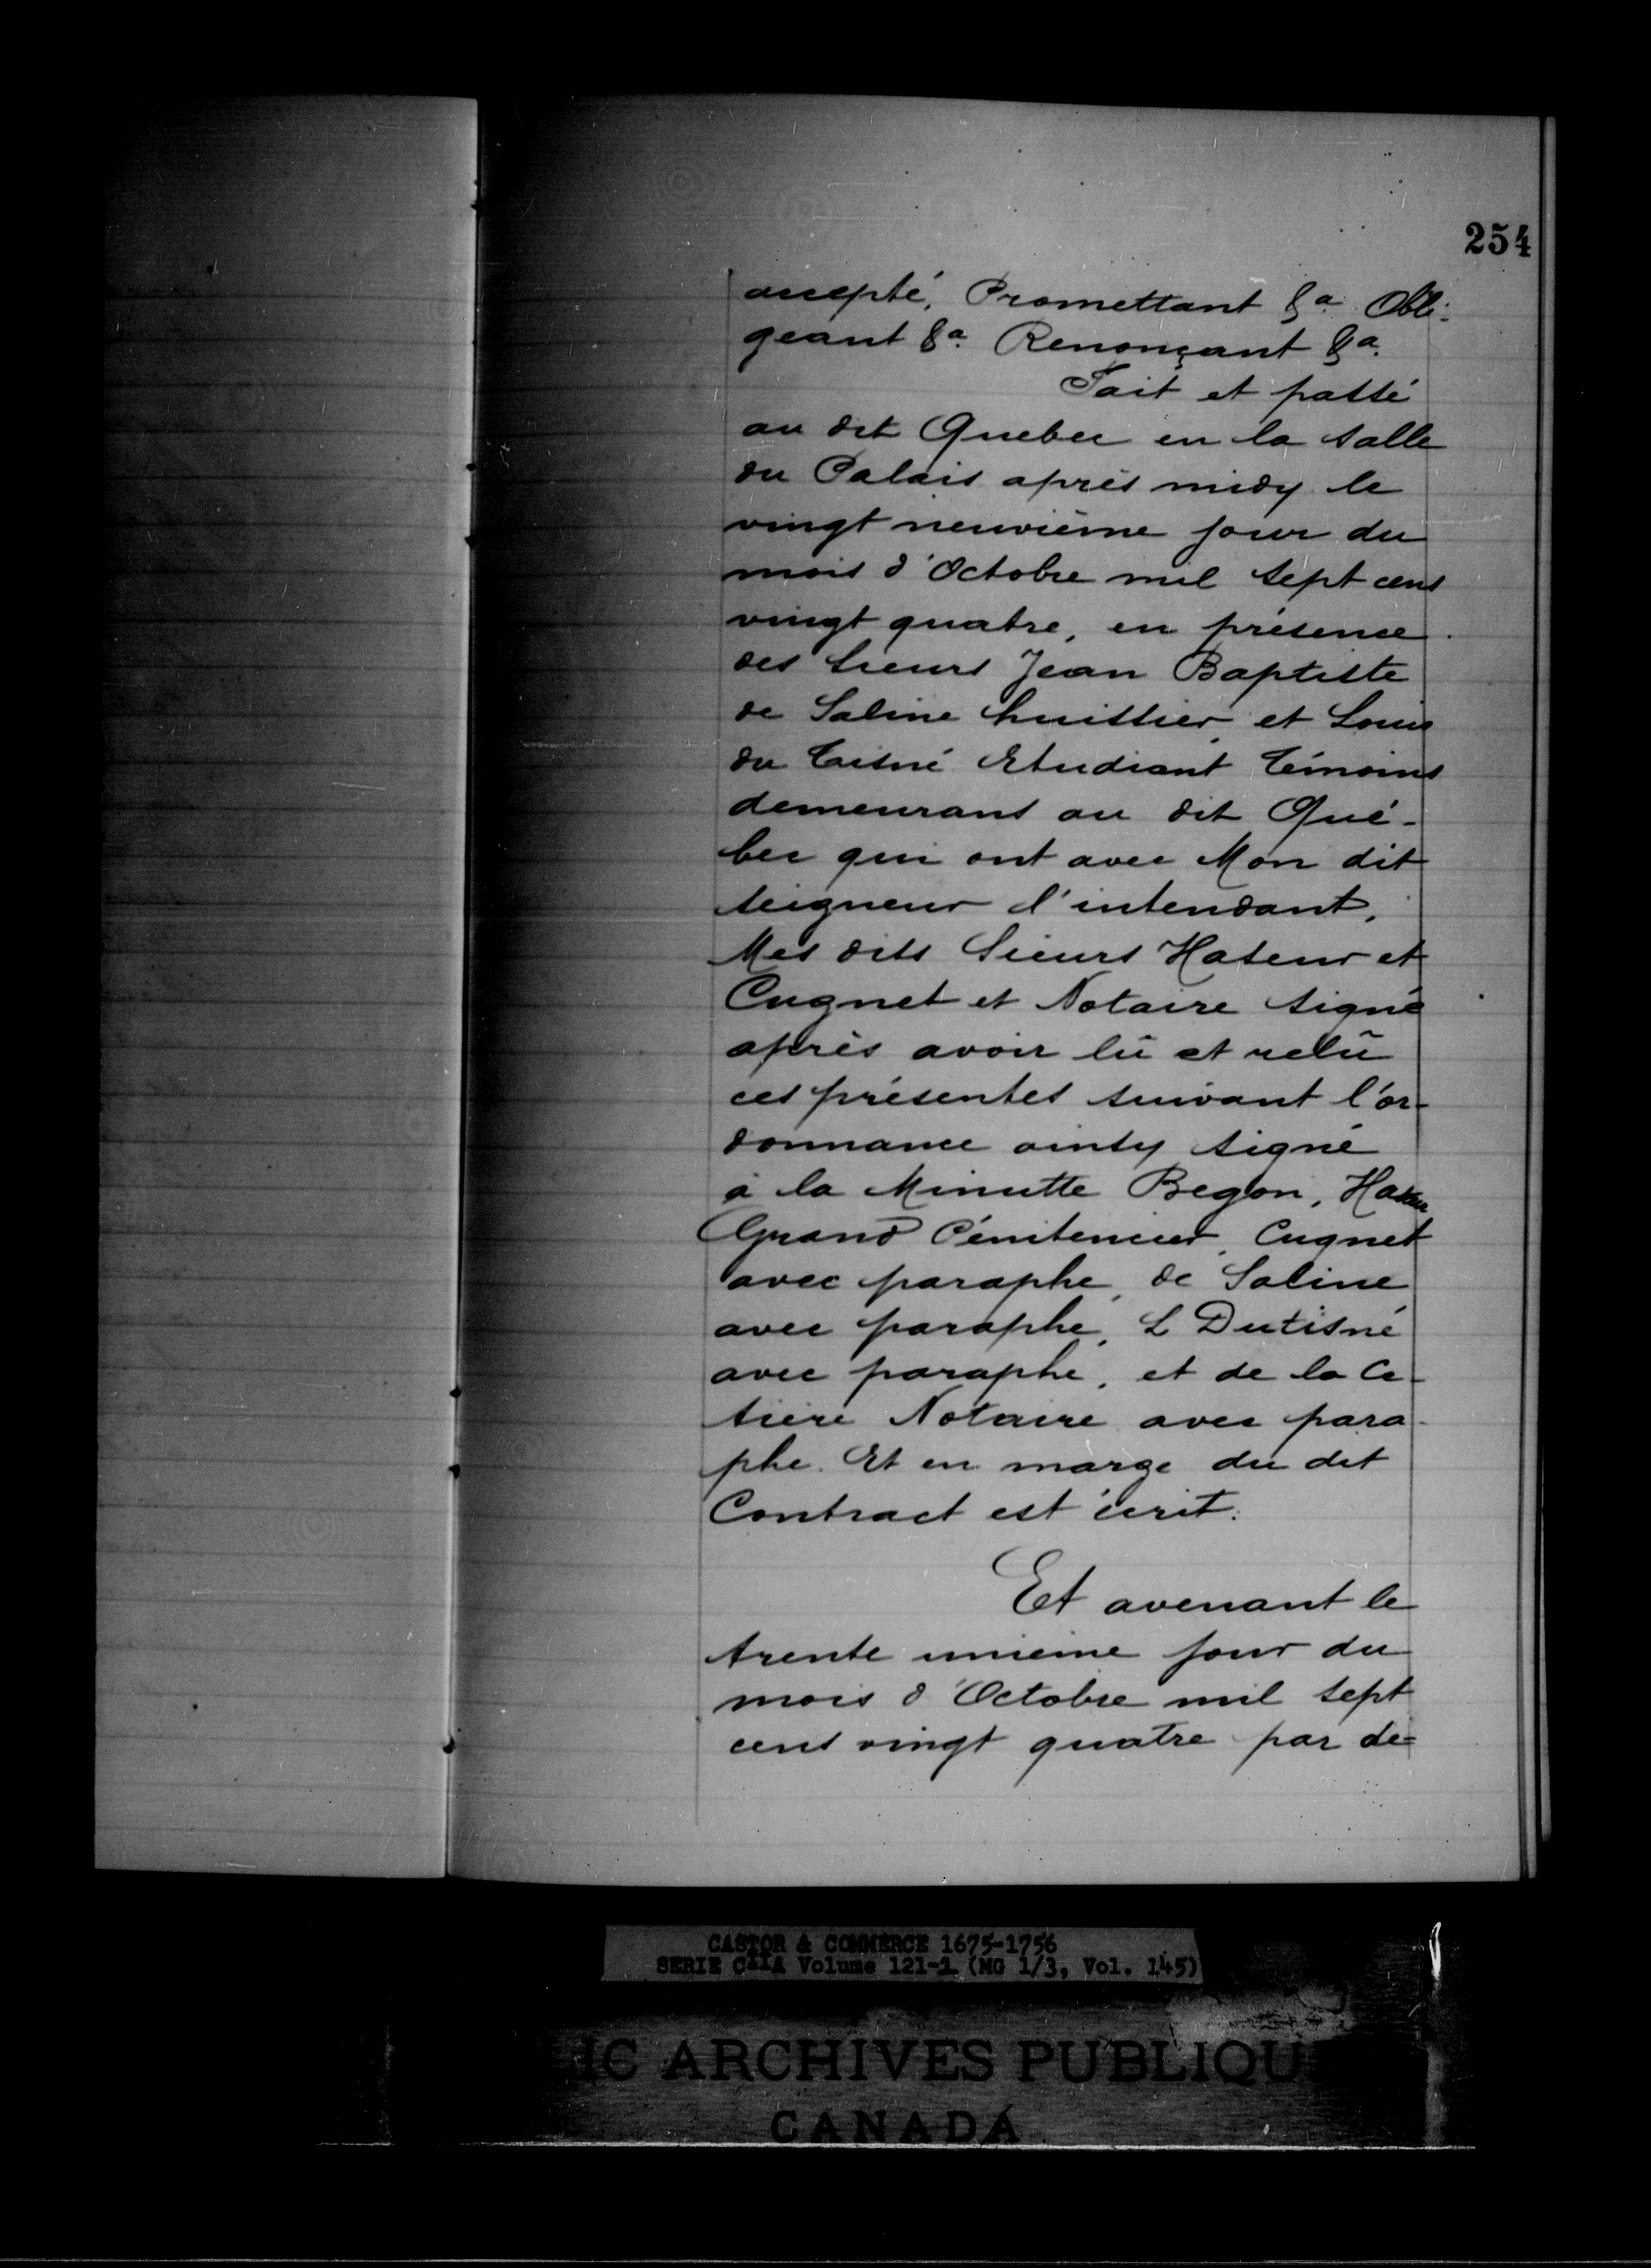 254
accepté, Promettant &a. Obli-
geant &a. Renonçant &a.
Fait et passé
au dit Quebec en la salle
du Palais après midy le
vingt neuvième jour du
mois d'Octobre mil sept cens
vingt quatre, en présence
des Sieurs Jean Baptiste
de Saline huissier, et Louis
du Tisné Etudiant témoins
demeurans au dit Qué-
bec qui ont avec Mon dit
seigneur l'intendant,
Mes dits Sieurs Haseur et
Cugnet et Notaire signé
après avoir lû et relû
ces présentes suivant l'or-
donnance ainsy signé
à la Minutte Begon, Haseur
Grand Pénitencier, Cugnet
avec paraphe, de Saline
avec paraphe, L Dutisné
avec paraphe, et de la Ce-
tiere Notaire avec para-
phe. Et en marge du dit
Contract est écrit:
Et avenant le
trente unieme jour du
mois d'Octobre mil sept
cens vingt quatre par de=
CASTOR & COMMERCE 1675-1756
SERIE C11A Volume 121-1 (MG 1/3, Vol. 145)
IC ARCHIVES PUBLIQU
CANADA